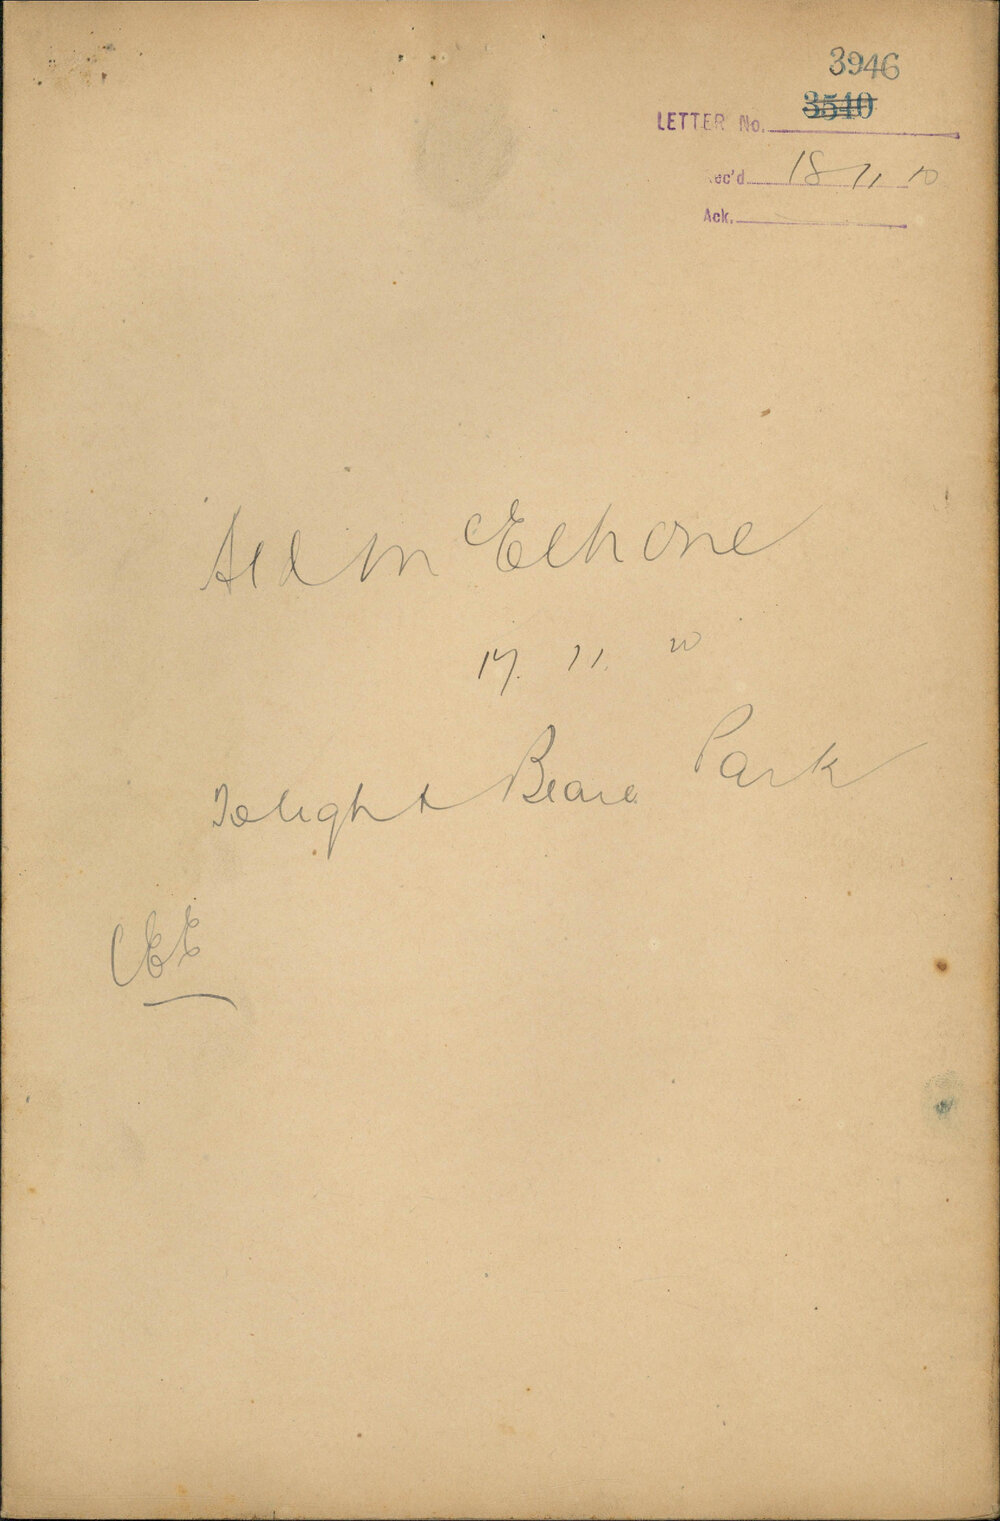 3946
3510
LETTER No.
Rec'd 18 11 10
Ack.
Ald McElhone
17. 11. 10
To light Beare Park